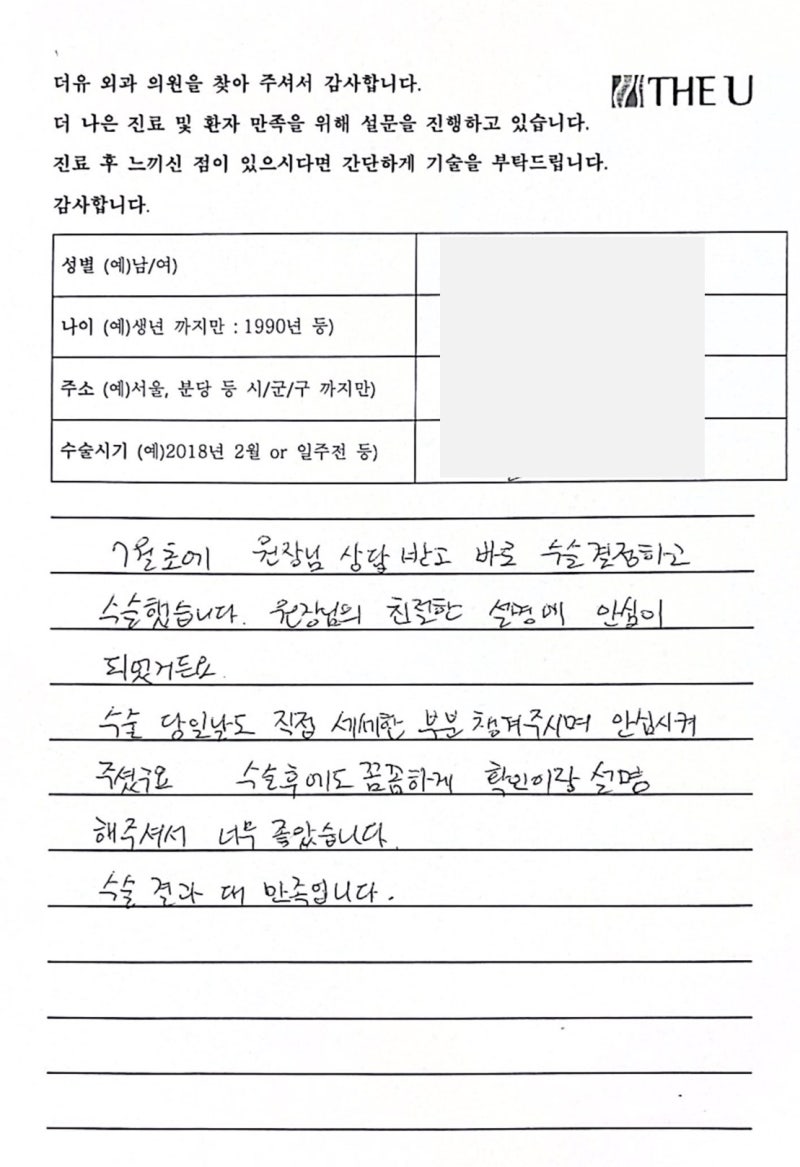 더유 외과 의원을 찾아 주셔서 감사합니다.
THE U
더 나은 진료 및 환자 만족을 위해 설문을 진행하고 있습니다.
진료 후 느끼신 점이 있으시다면 간단하게 기술을 부탁드립니다.
감사합니다.
성별 (예)남/여)
나이 (예)생년 까지만 : 1990년 등)
주소 (예)서울, 분당 등 시/군/구 까지만)
수술시기 (예)2018년 2월 or 일주전 등)
7월초에 원장님 상담받고 바로 수술결정하고
수술했습니다. 원장님의 친절한 설명에 안심이
되었거든요.
수술 당일날도 직접 세세한 부분 챙겨주시며 안심시켜
주셨구요 수술후에도 꼼꼼하게 확인이랑 설명
해주셔서 너무 좋았습니다.
수술 결과 대 만족입니다.